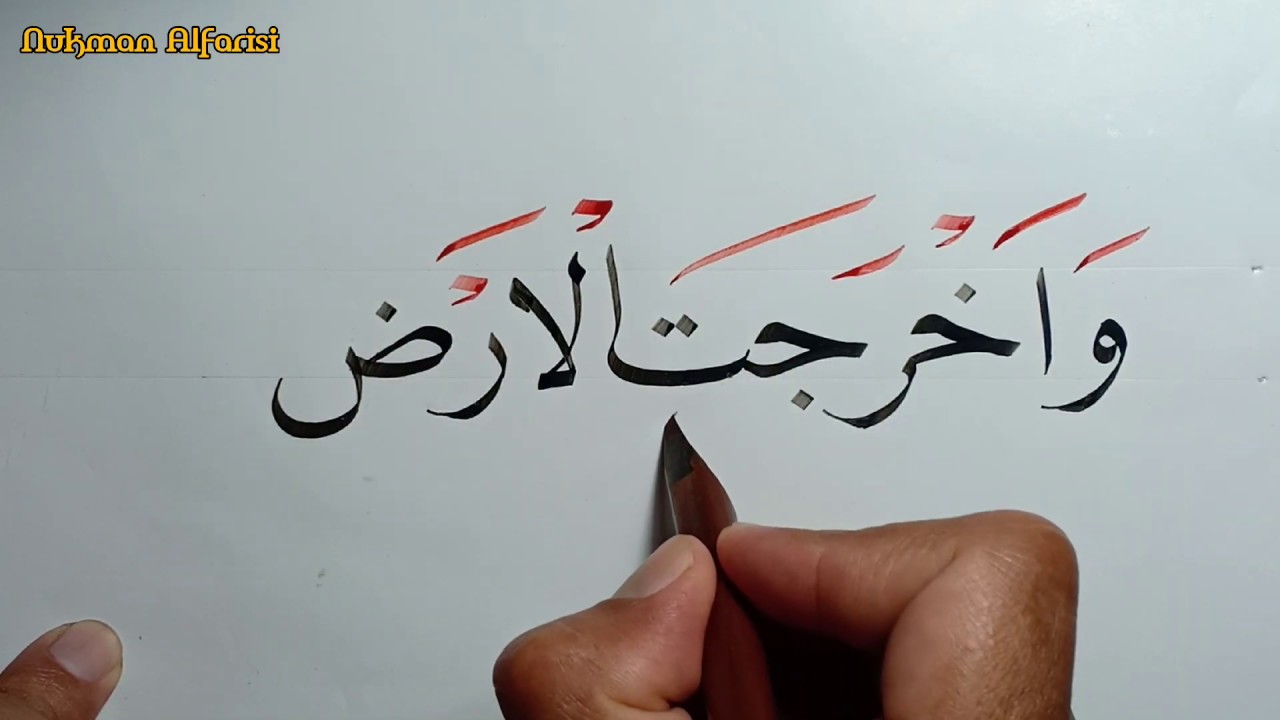 Nukman Alfarisi
وَاَخْرَجَتَ الْارْضَ